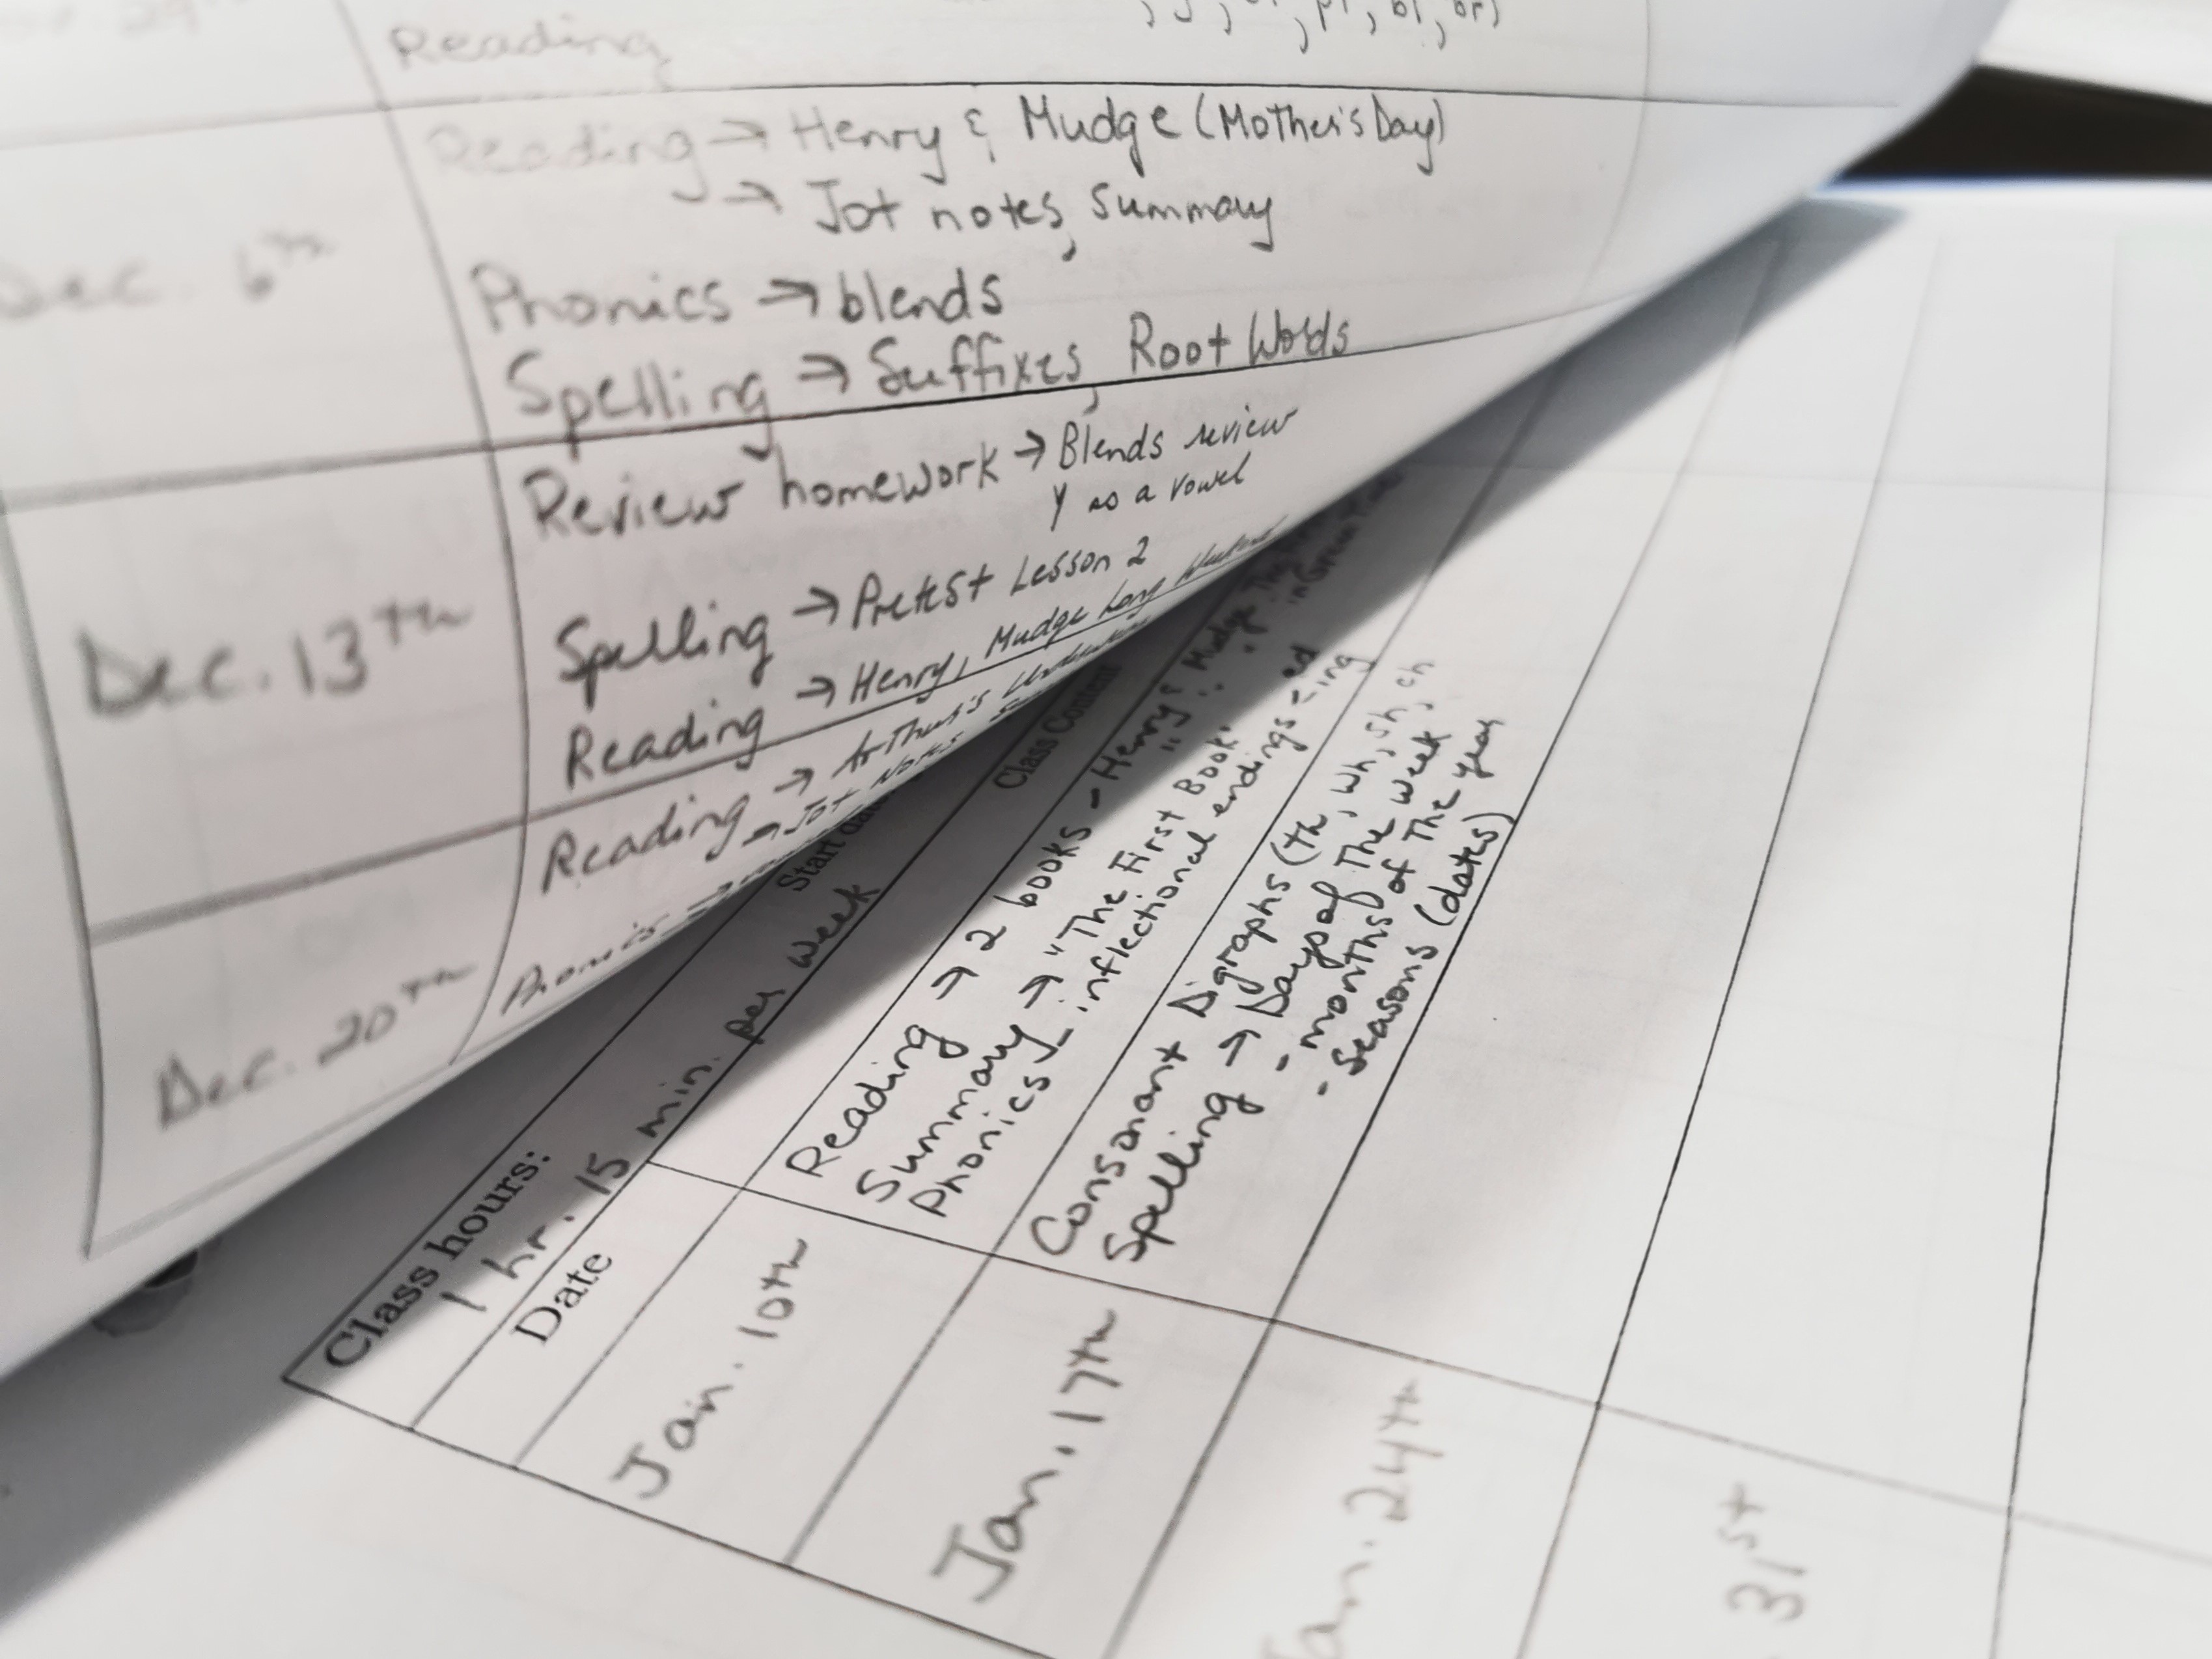 Reading
Reading → Henry & Mudge (Mother's Day)
→ Jot notes, summary
Dec. 6th
Phonics → blends
Spelling → Suffixes, Root Words
Review homework → Blends review
Y as a vowel
Dec. 13th
Spelling → Pretest Lesson 2
Reading → Henry, Mudge Long
Reading → Arthur's
→ Jot Notes
Dec. 20th
Phonics →
Class hours:
1 hr. 15 min. per week
Start date
Date
Class Content
Jan. 10th
Reading → 2 books - Henry & Mudge The
" " " in Green Time
Summary → "The First Book"
Phonics → inflectional endings -ed
-ing
Jan. 17th
Consonant Digraphs (th, wh, sh, ch
Spelling → Days of The week
- months of The year
- seasons (dates)
Jan. 24th
31st